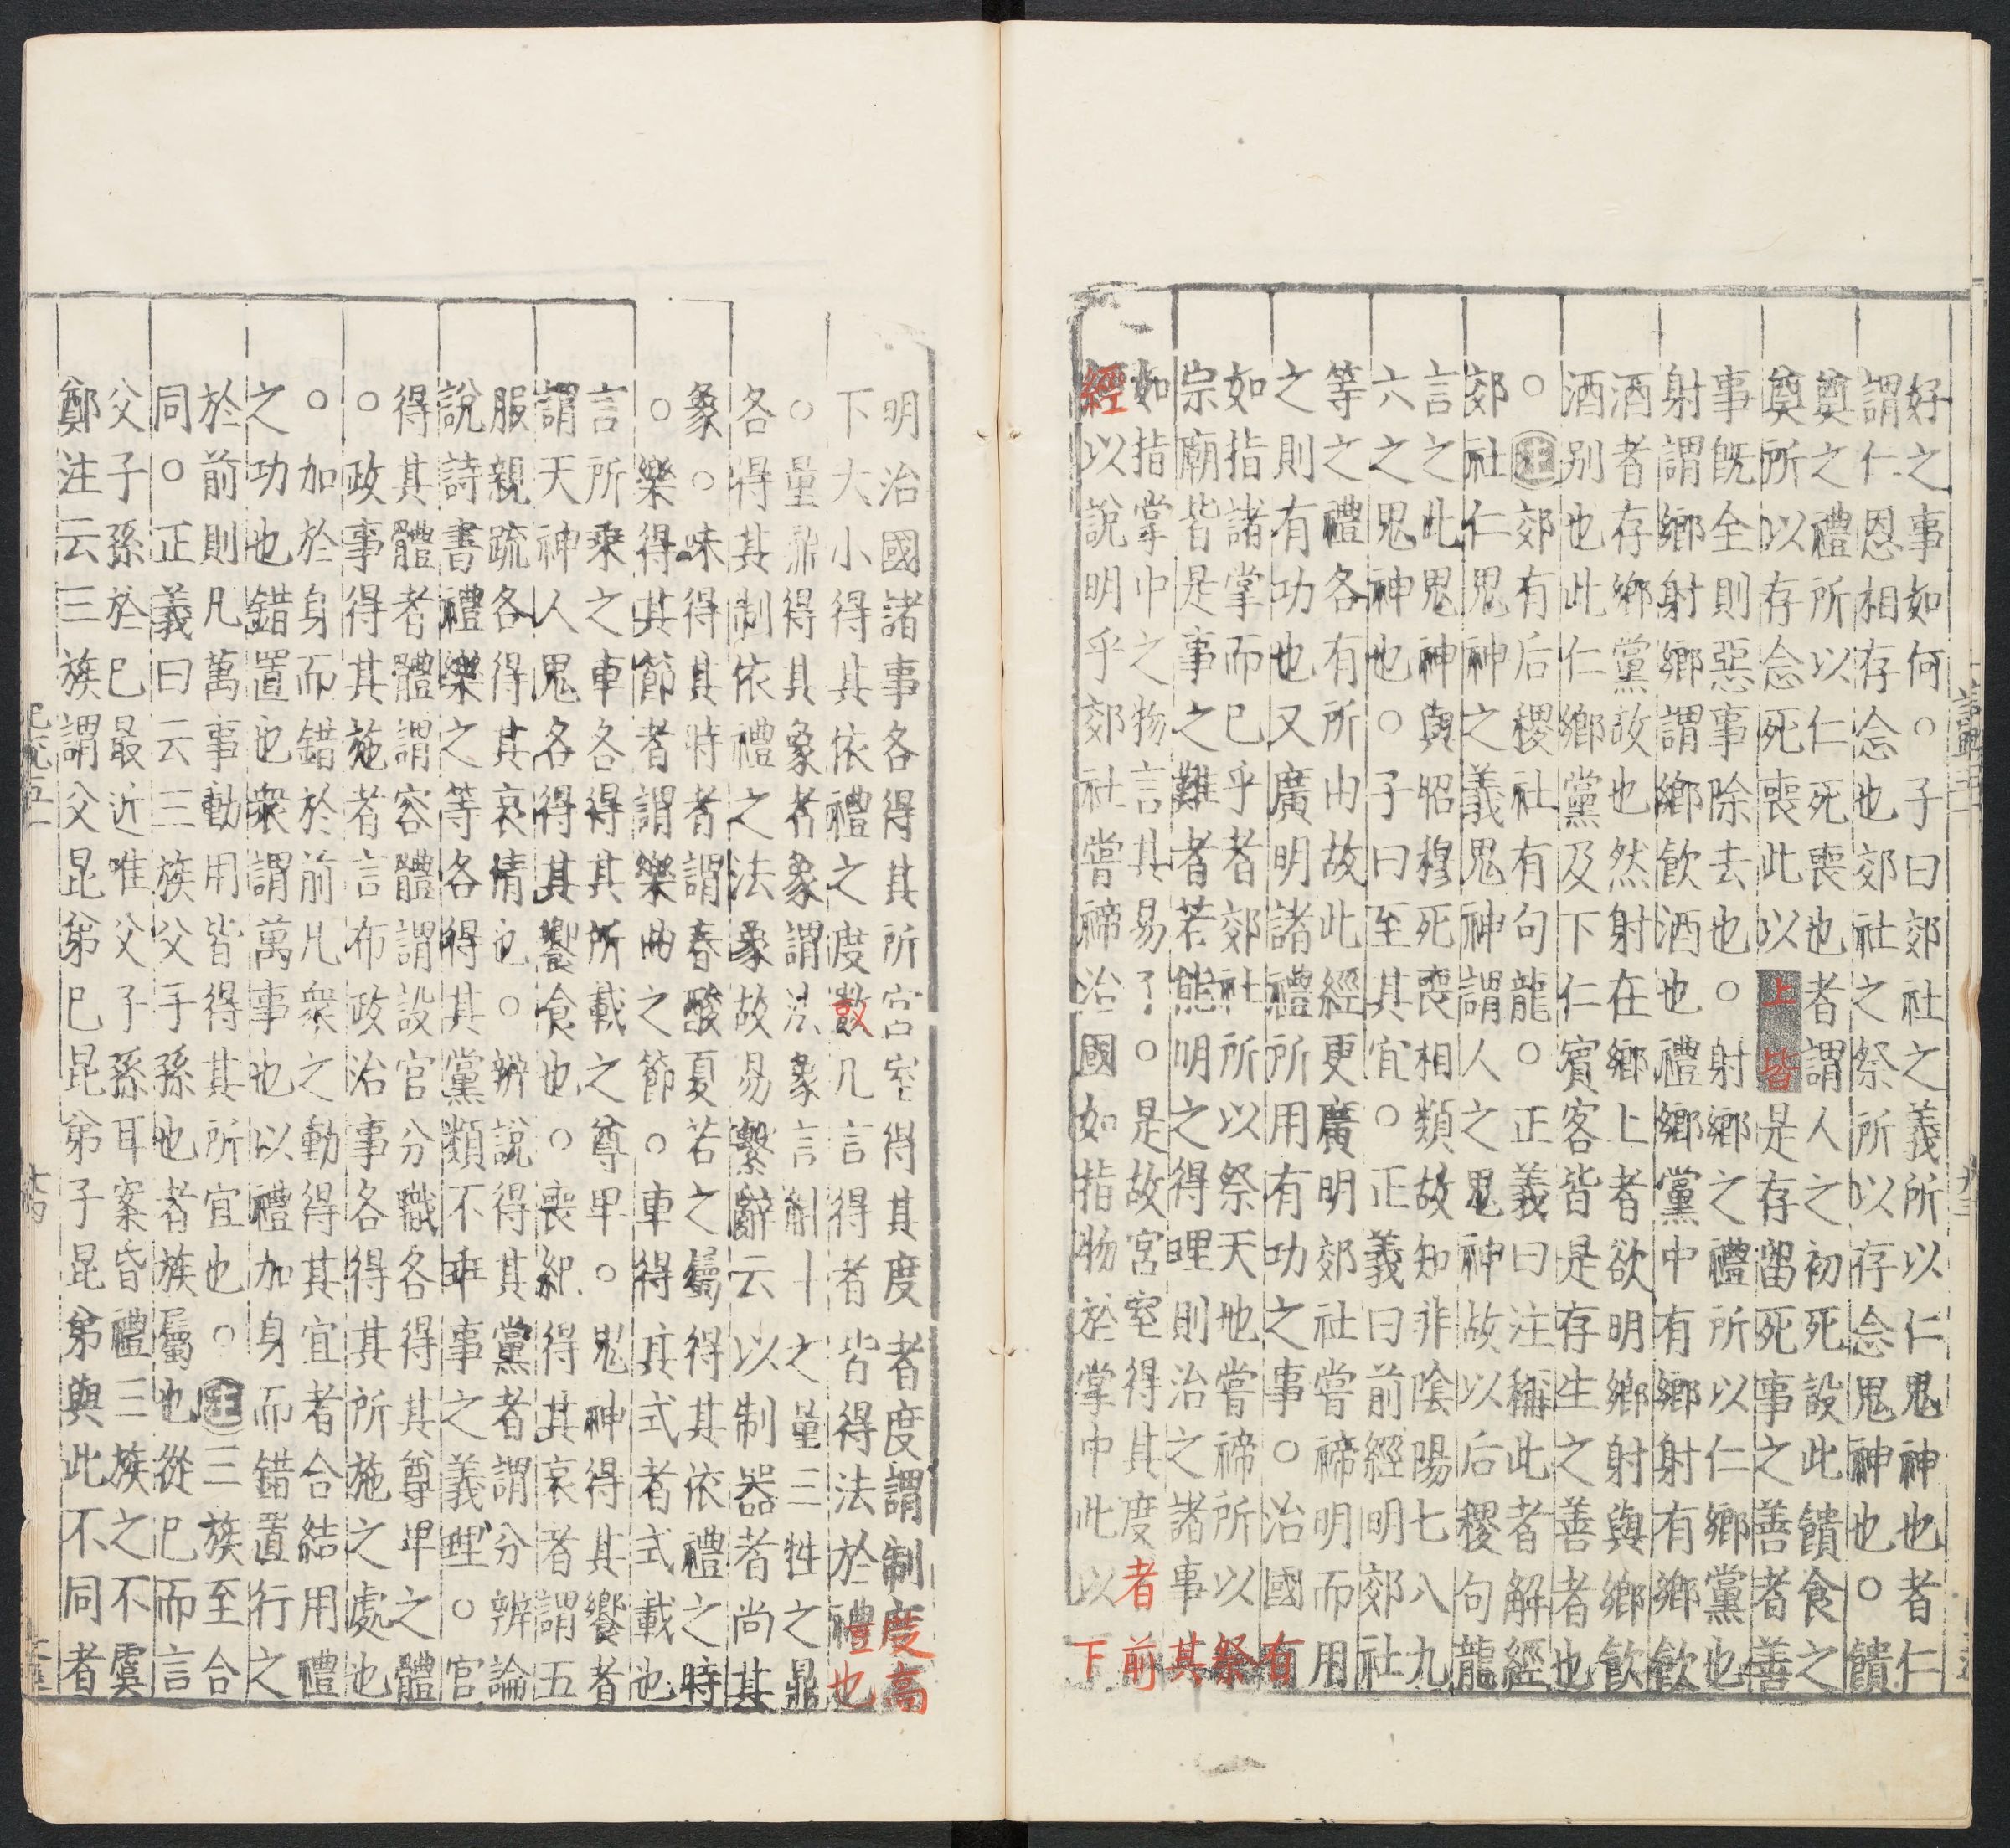 好之事如何○子曰郊社之義所以仁鬼神也者仁
謂仁恩相存念也郊社之祭所以存念鬼神也○饋
奠之禮所以仁死喪也者謂人之初死設此饋食之
奠所以存念死喪此以上皆是存留死事之善者善
事既全則惡事除去也○射鄉之禮所以仁鄉黨也
射謂鄉射鄉謂鄉飲酒也禮鄉黨中有鄉射有鄉飲
酒者存鄉黨故也然射在鄉上者欲明鄉射與鄉飲
酒別也此仁鄉黨及下仁賓客皆是存生之善者也
○注郊有后稷社有句龍○正義曰注稱此者解經
郊社仁鬼神之義鬼神謂人之鬼神故以后稷句龍
言之此鬼神與昭穆死喪相類故知非陰陽七八九
六之鬼神也○子曰至其宜○正義曰前經明郊社
等之禮各有所由故此經更廣明郊社嘗禘明而用
之則有功也又廣明諸禮所用有功之事○治國有
如指諸掌而已乎者郊社所以祭天地嘗禘所以祭
宗廟皆是事之難者若能明之得理則治之諸事其
如指掌中之物言其易了○是故宮室得其度者前
經以說明乎郊社嘗禘治國如指物於掌中此以下
明治國諸事各得其所宮室得其度者度謂制度高
下大小得其依禮之度數凡言得者皆得法於禮也
○量鼎得其象者象謂法象言制十之量三牲之鼎
各得其制依禮之法象故易繫辭云以制器者尚其
象○味得其時者謂春酸夏若之屬得其依禮之時
○樂得其節者謂樂曲之節○車得其式者式載也
言所乗之車各得其所載之尊卑○鬼神得其饗者
謂天神人鬼各得其饗食也○喪紀得其哀者謂五
服親疏各得其哀情也○辨說得其黨者謂分辨論
說詩書禮樂之等各得其黨類不乖事之義理○官
得其體者體謂容體謂設官分職各得其尊卑之體
○政事得其施者言布政治事各得其所施之處也
○加於身而錯於前凡衆之動得其宜者合結用禮
之功也錯置也衆謂萬事也以禮加身而錯置行之
於前則凡萬事動用皆得其所宜也○注三族至合
同○正義曰云三族父子孫也者族屬也從己而言
父子孫於已最近唯父子孫耳案昏禮三族之不虞
鄭注云三族謂父昆弟已昆弟子昆弟與此不同者